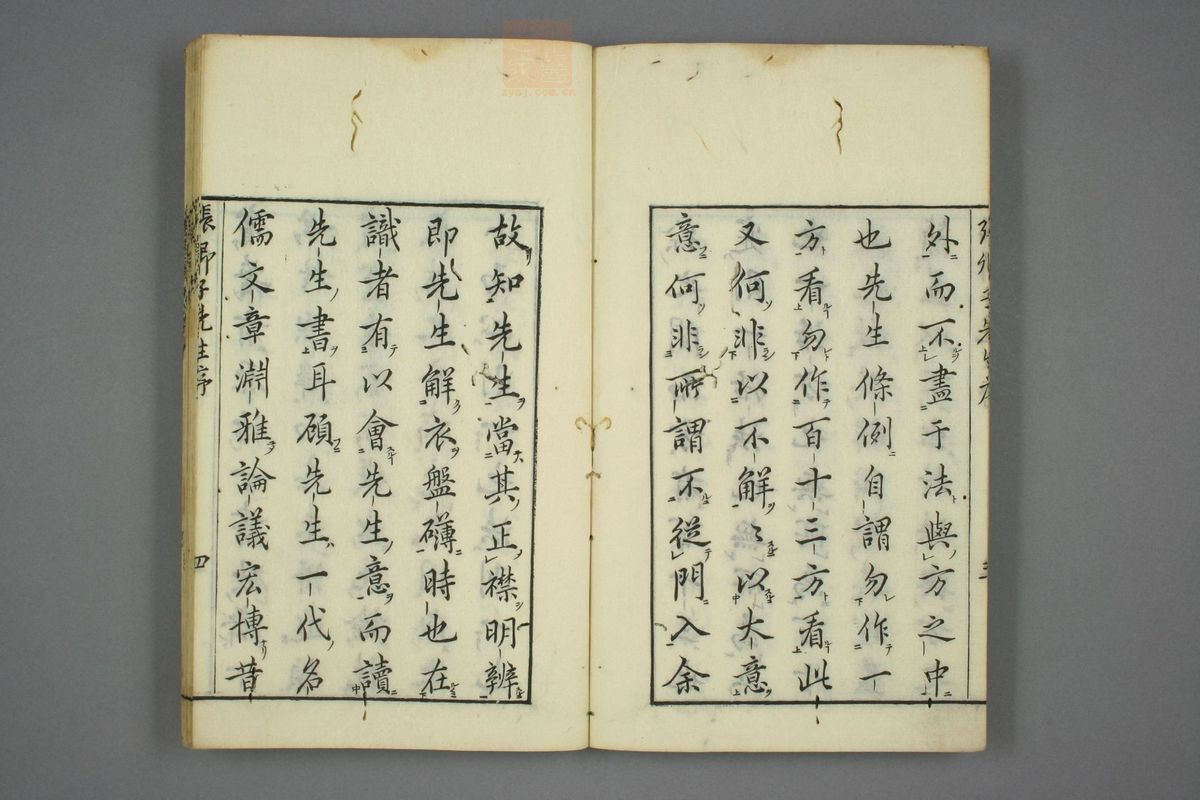 外而不盡于法與方之中
也先生條例自謂勿作一
方看勿作百十三方看此
又何非以不解〻以大意
意何非所謂不從門入余
三
故知先生當其正襟明辨
即先生解衣盤礴時也在
識者有以會先生意而讀
先生書耳顧先生一代名
儒文章淵雅論議宏博昔
張卿子先生序
四
zysj.com.cn